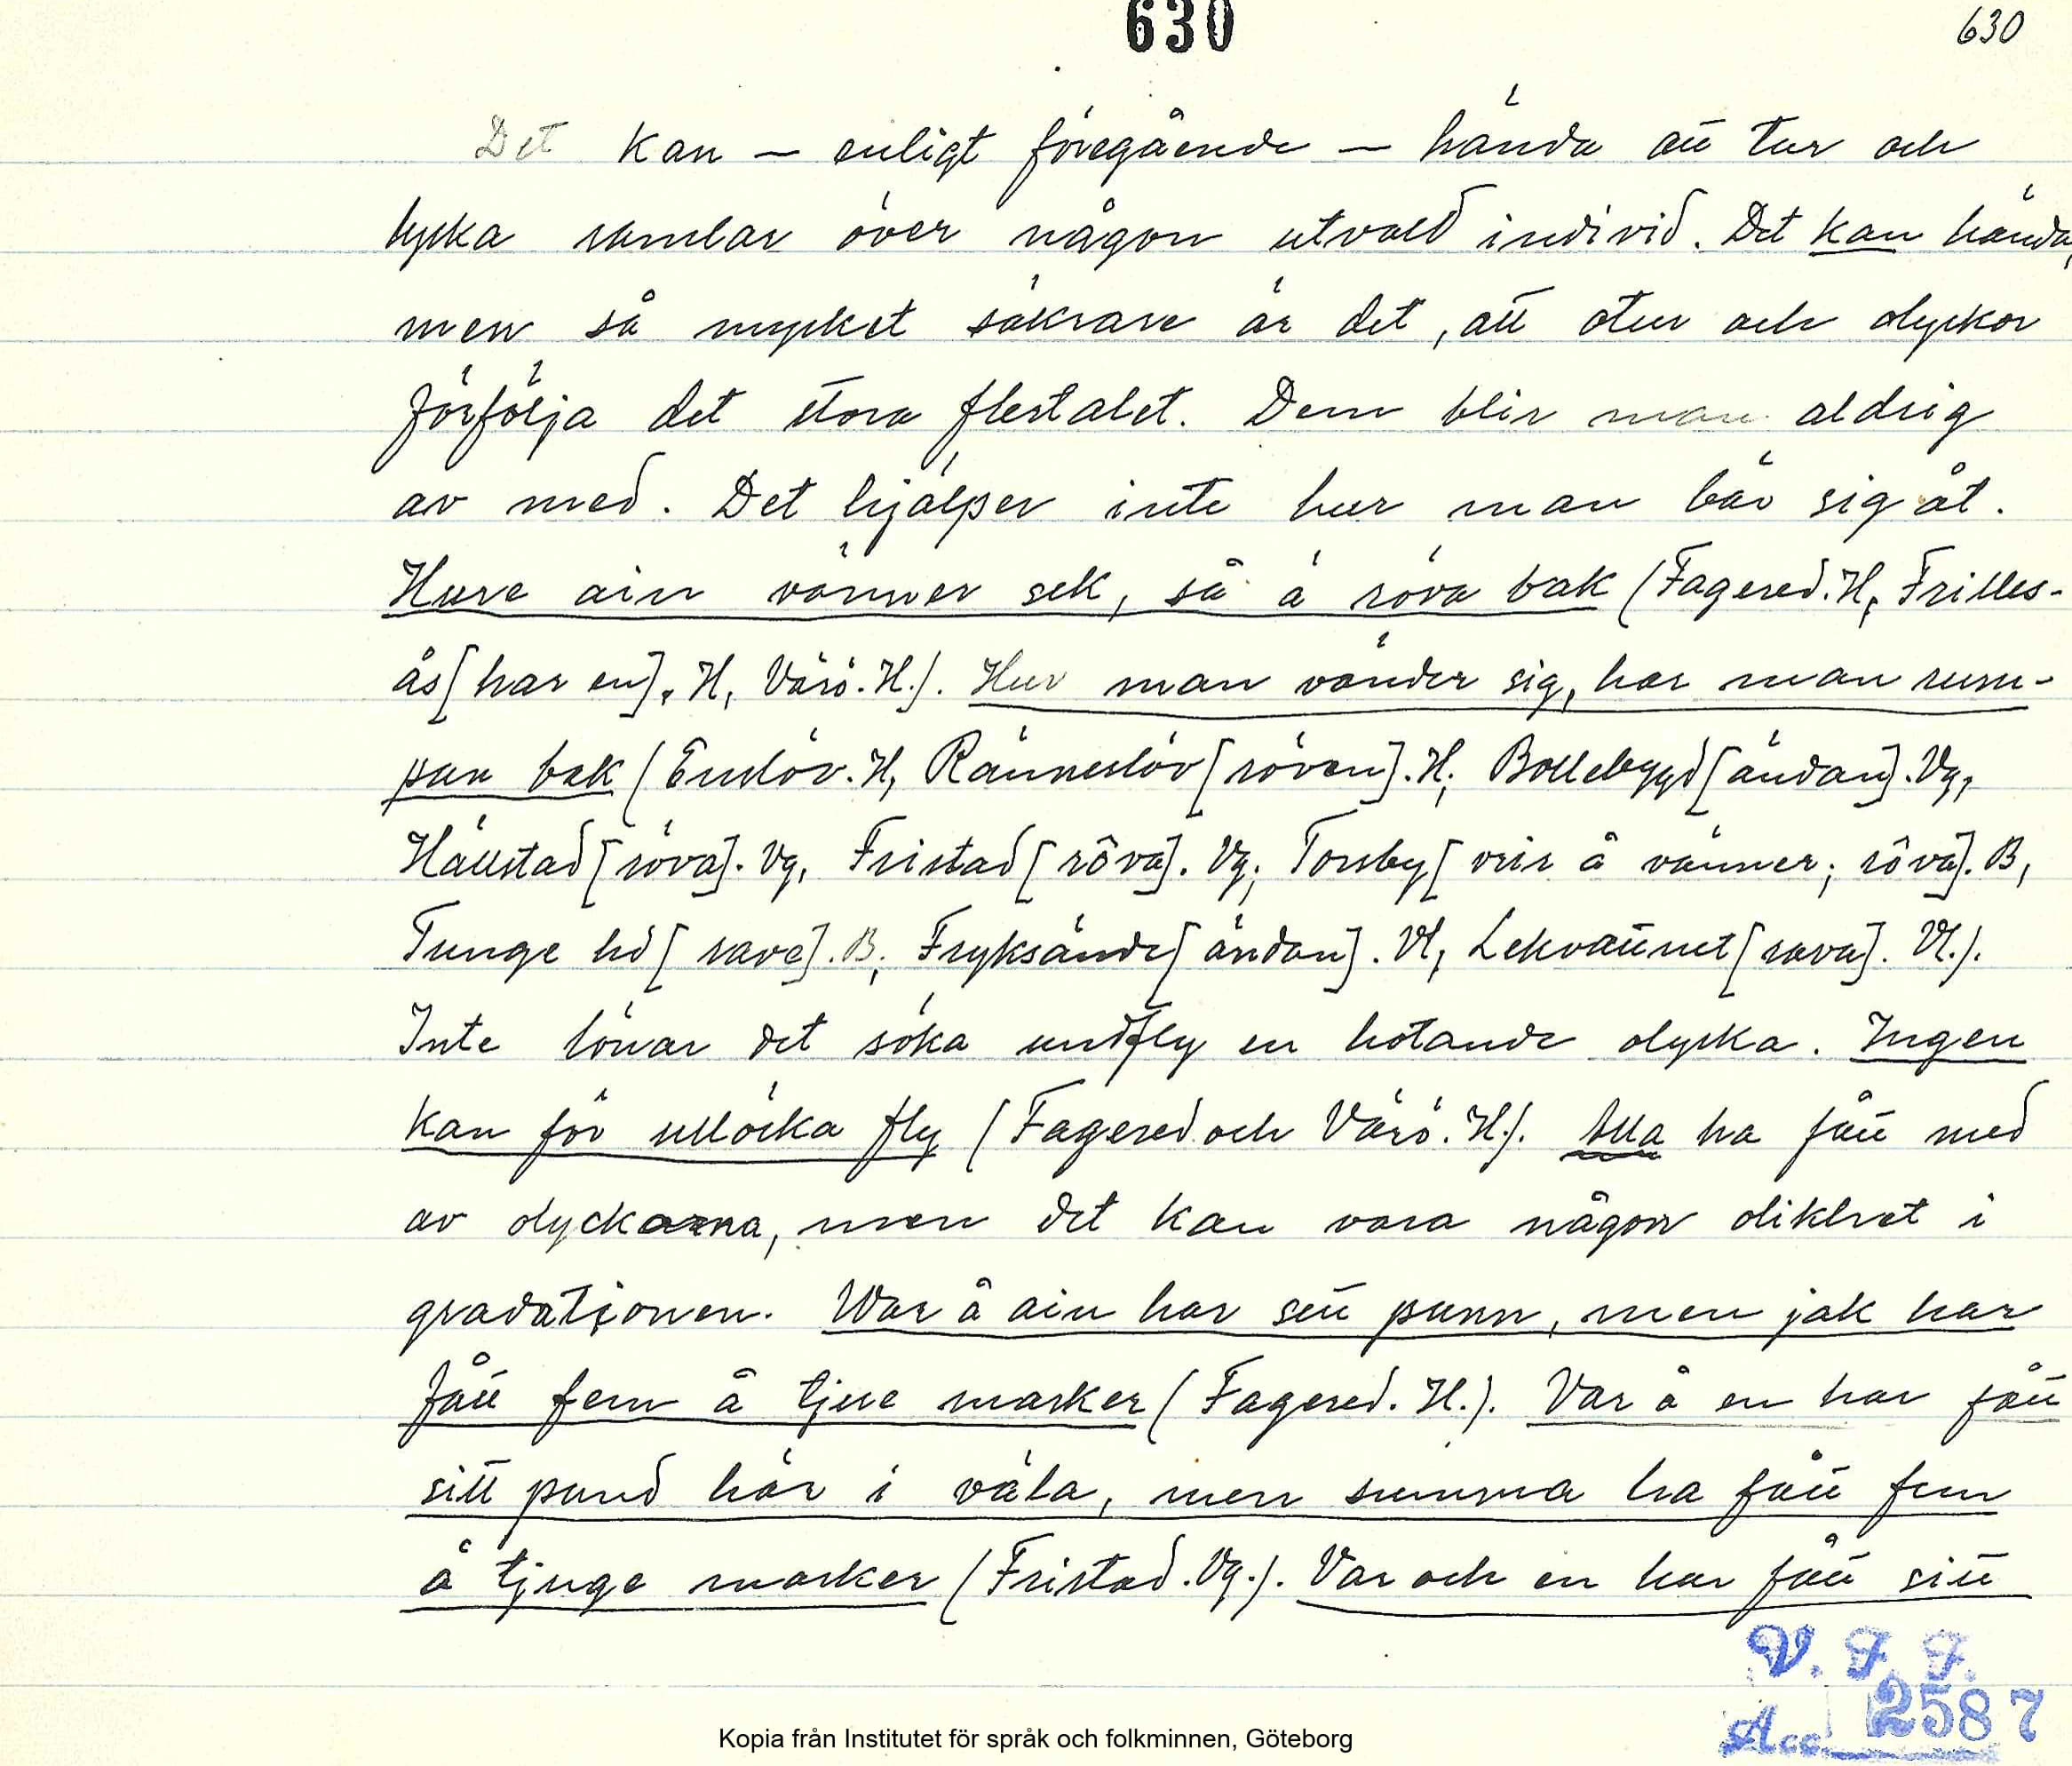 630
630
Det kan – enligt föregående – hända att tur och
lycka ramlar över någon utvald individ. Det kan hända,
men så mycket säkrare är det, att otur och olyckor
förfölja det stora flertalet. Dem blir man aldrig
av med. Det hjälper inte hur man bär sig åt.
Hure ain vänner sek, så ä röva bak (Fagered. H, Frilles-
ås [har en]. H, Värö. H.). Hur man vänder sig, har man rum-
pan bak (Enslöv. H, Ränneslöv [röven]. H; Bollebygd [ändan]. Vg,
Hällstad [röva]. Vg, Fristad [röva]. Vg; Torsby [vrir å vänner; röva]. B,
Tunge hd [rave]. B; Fryksände [ändan]. Vl, Lekvattnet [rava]. Vl.).
Inte lönar det söka undfly en hotande olycka. Ingen
kan för ullöcka fly (Fagered och Värö. H.). Alla ha fått med
av olyckorna, men det kan vara någon olikhet i
gradationen. War å ain har sett punn, men jak har
fått fem å tjue marker (Fagered. H.). Var å en har fått
sitt pund här i väla, men summa ha fått fem
å tjuge marker (Fristad. Vg.). Var och en har fått sitt
V. F. F.
Acc. 2587
Kopia från Institutet för språk och folkminnen, Göteborg